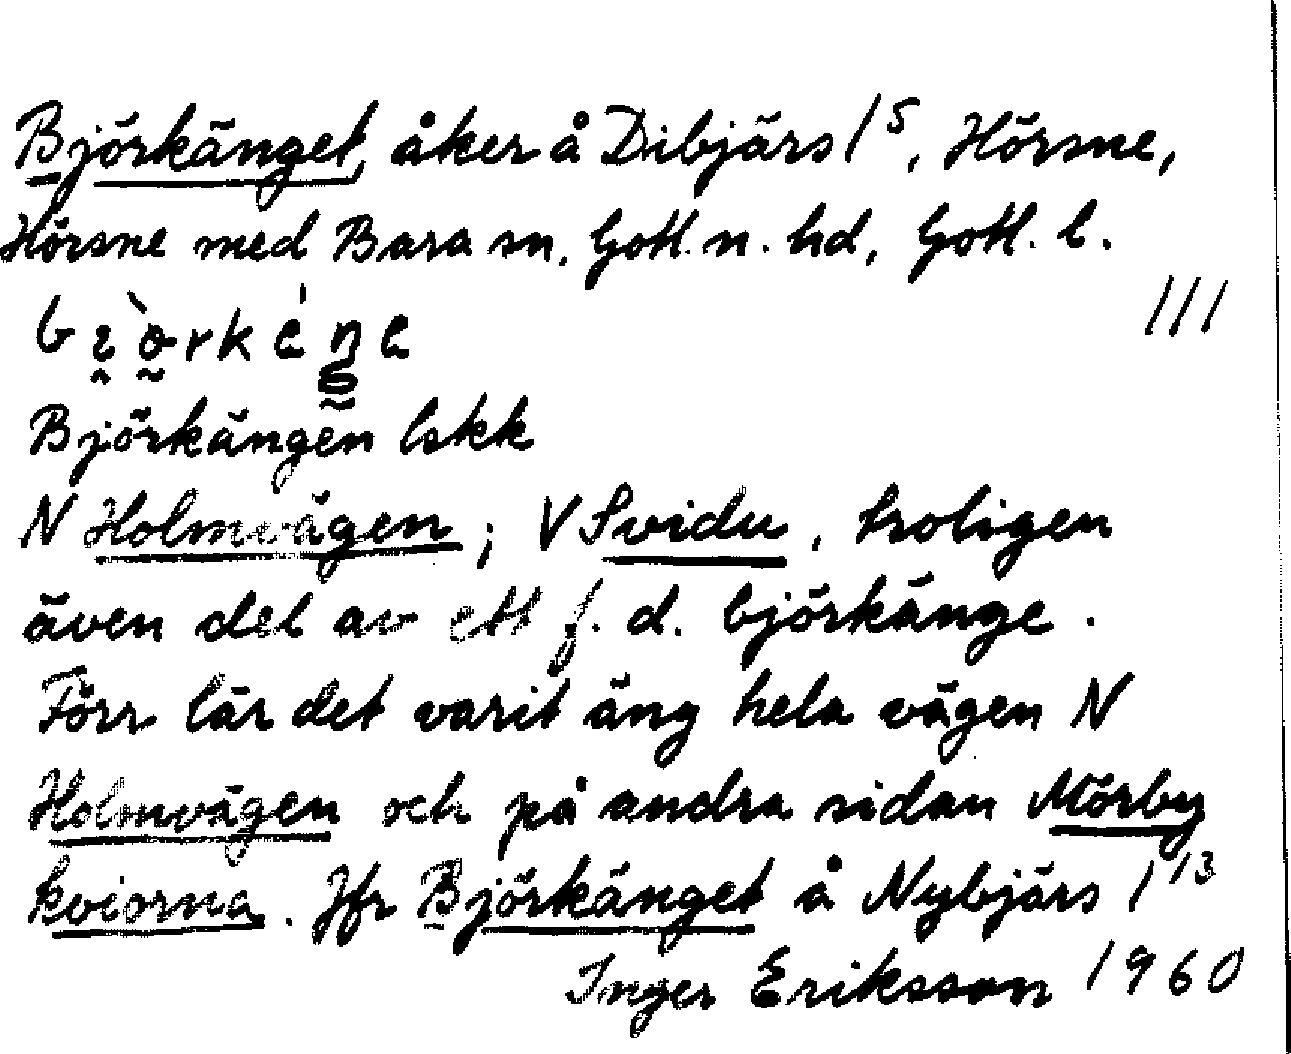 Björkänget, åker å Dibjärs 1⁵, Hörsne,
Hörsne med Bara sn, Gotl. n. hd, Gotl. l.
111
Björkängen lskk
N Holmvägen; V Svidu, troligen
även del av ett f. d. björkänge.
Förr lär det varit äng hela vägen N
Holmvägen och på andra sidan Mörby
kviorna. Jfr Björkänget å Nybjärs 1¹³
Inger Eriksson 1960